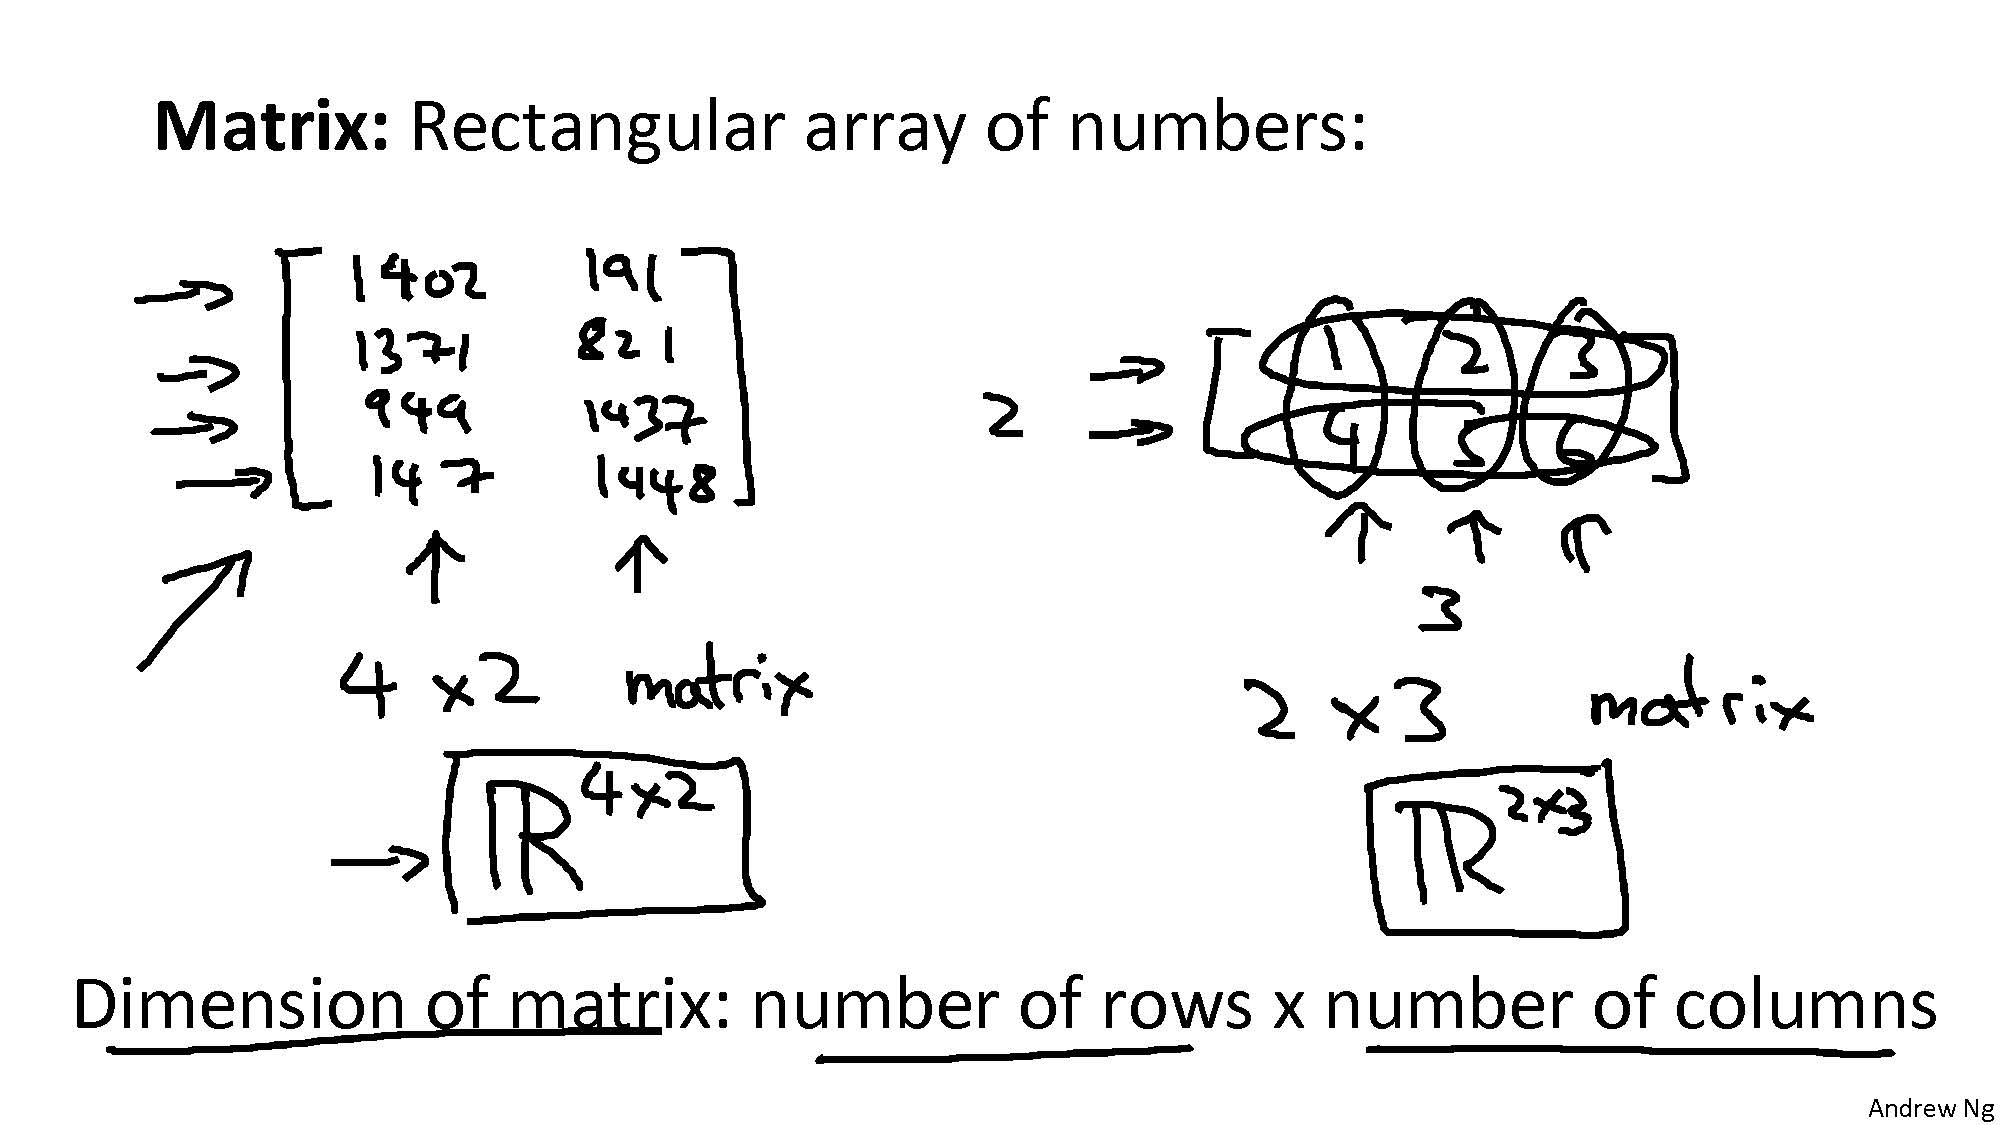 Matrix: Rectangular array of numbers:
1402 191
1371 821
949 1437
147 1448
4 x 2 matrix
ℝ4x2
2
1 2 3
4 5 6
3
2 x 3 matrix
ℝ2x3
Dimension of matrix: number of rows x number of columns
Andrew Ng